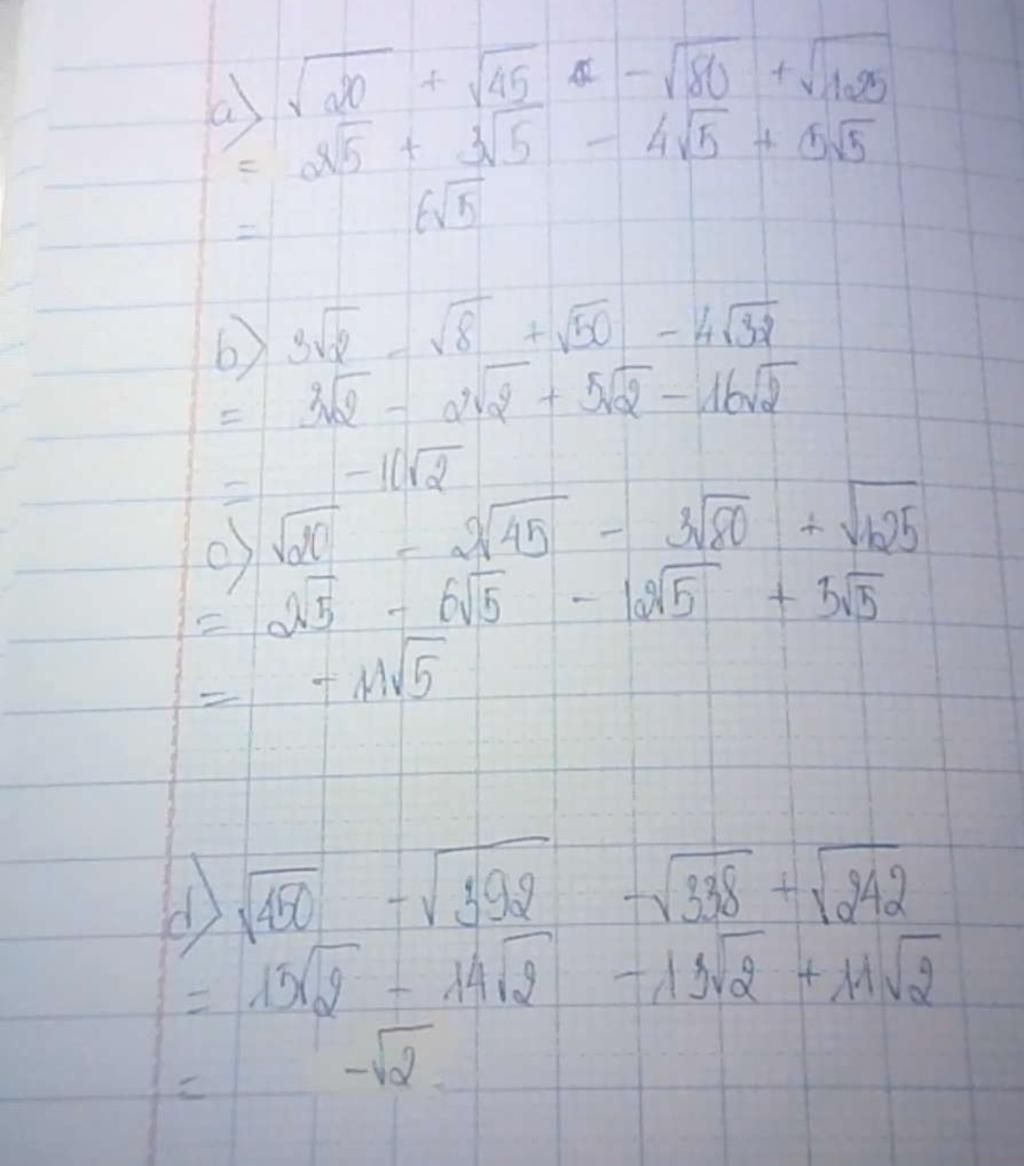 a) √20 + √45 - √80 + √125
= 2√5 + 3√5 - 4√5 + 5√5
= 6√5
b) 3√2 - √8 + √50 - 4√32
= 3√2 - 2√2 + 5√2 - 16√2
= -10√2
c) √20 - 2√45 - 3√80 + √125
= 2√5 - 6√5 - 12√5 + 5√5
= - 11√5
d) √450 - √392 - √338 + √242
= 15√2 - 14√2 - 13√2 + 11√2
= -√2